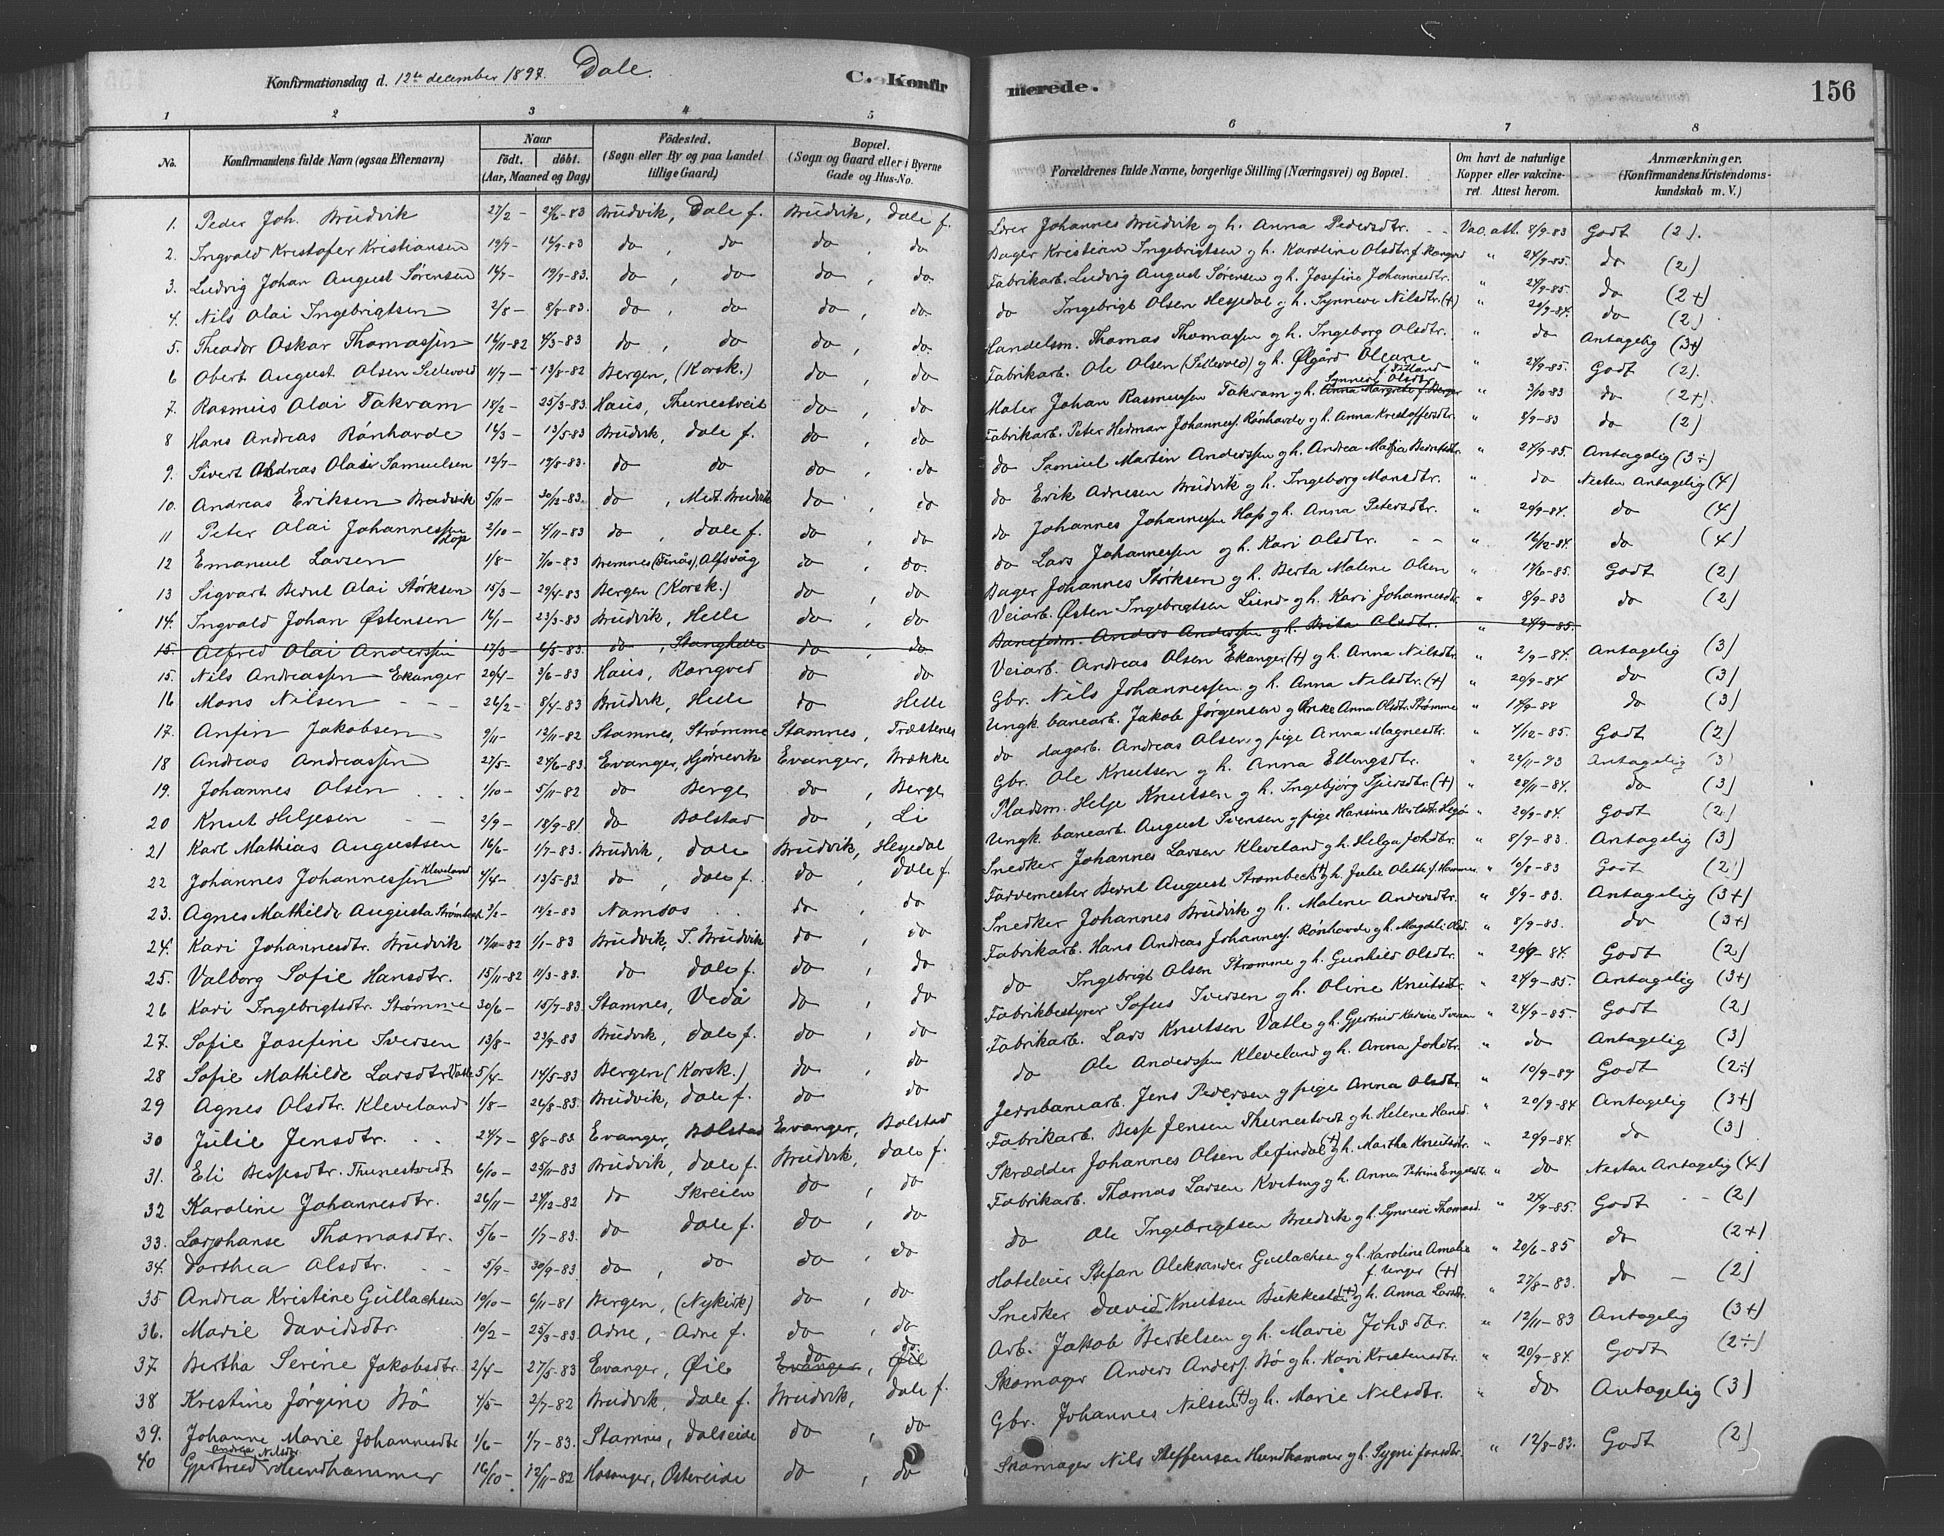 Konfirmationsdag d. 12te december 1897. Dale.
C. Konfirmerede.
156
1 2 3 4 5 6 7 8
No.
Konfirmandens fulde Navn (ogsaa Efternavn)
Naar
født. døbt.
(Aar, Maaned og Dag)
Födested.
(Sogn eller By og paa Landet
tillige Gaard)
Bopæl.
(Sogn og Gaard eller i Byerne
Gade og Hus-No.
Forældrenes fulde Navne, borgerlige Stilling (Næringsvei) og Bopæl.
Om havt de naturlige
Kopper eller vakcine-
ret. Attest herom.
Anmærkninger.
(Konfirmandens Kristendoms-
kundskab m. V.)
1. Peder Joh. Brudvik 27/2- 24/6-83 Brudvik, Dale f. Brudvik, Dale f. Lærer Johannes Brudvik g h. Anna Pedersdtr. Vac. att. 8/9-83 Godt (2).
2. Ingvald Kristofer Kristiansen 19/7- 16/9-83 do, do do, do Bager Kristian Ingebrigtsen g h. Karoline Olsdtr. " 24/9-85. do (2)
3. Ludvig Johan August Sørensen 14/7- 19/9-83. do, do do, do Fabrikarb. Ludvig August Sørensen g h. Josefine Johannesdtr. " 24/9-85. do (2+)
4. Nils Olai Ingebrigtsen 2/8- 8/8-83. do, do do, do do Ingebrigt Olsen Hesjedal g h. Synneve Nilsdtr. (+) " 24/9-84. do (2)
5. Theodor Oskar Thomassen 16/11-82 4/3-83 do, do do, do. Handelsm. Thomas Thomassen g h. Ingeborg Olsdtr. " do Antagelig (3+)
6 Obert August Olsen 11/7- 13/8-82 Bergen, (Korsk.) do, do Fabrikarb. Ole Olsen g h. Ølgård Oleane " 24/9-85. Godt (2).
7. Rasmus Olai Takvam 18/2- 25/3-83. Haus, Thunestveit do, do Maler Johan Rasmussen Takvam g h. Synneve Olsdtr. " 3/10-83 do (2+)
8 Hans Andreas Rønhovde 16/3- 13/5-83 Brudvik, Dale f. do, do Fabrikarb. Peter Hedmar Johanness. Rønhovde g h. Anna Kristoffersdtr. " 8/9-83 do (2)
9. Sivert Andreas Olai Samuelsen 12/7- 19/8-83. do do do, do do Samuel Martin Anderssen g h. Andrea " 24/9-85. Antagelig (3÷)
10. Andreas Eriksen Brudvik 5/11- 30/12-83. do, Brudvik do, do do Erik Arnesen Brudvik g h. Ingeborg Monsdtr. " do Nesten Antagelig (4)
11 Peter Olai Johannessen Hop 2/10- 4/11-83 do, Dale f. do, do do Johannes Johannessen Hop g h. Anna Petersdtr. " 20/9-84. do (4)
12 Emanuel Larsen 1/8- 7/10-83 Bremnes, Alfsvåg do, do. do Lars Johannessen g h. Kari Olsdtr. " 16/12-84. do (4)
13 Sigvart Bernt Olai Størksen 15/3- 29/4-83 Bergen (Korsk.) do, do Bager Johannes Størksen g h. Berta Malene Olsen " 17/6-85. Godt (2)
14. Ingvald Johan Østensen 16/1- 23/3-83 Brudvik, Helle do, do Veiarb. Østen Ingebrigtsen Lund g h. Kari Johannesdtr. " 8/9-83 do (2)
15. Alfred Olai Anderssen 17/3- 6/5-83. do, Stanghelle do do Baneform. Anders Anderssen g h. Brita Olsdtr. " 24/9-85.
15. Nils Andreassen Ekanger 29/4- 3/6-83 Haus, Rongved do do Veiarb. Andreas Olsen Ekanger (+) g h. Anna Nilsdtr. " 2/9-84. Antagelig (3)
16 Mons Nilsen 26/2- 8/4-83 Brudvik, Helle do Helle Gbr. Nils Johannessen g h. Anna Nilsdtr. (+) " 20/9-84 do (3)
17. Anfin Jakobsen 9/11- 12/11-82 Stamnes, Strømme Stamnes, Træstenes Ungk. banearb. Jakob Jørgensen g Anna Olsdtr. Strømme " 14/9-88 do (3)
18 Andreas Andreassen 27/5- 24/6-83. Evanger, Evanger, Brække do dagarb. Andreas Olsen, g pige Anna Magnesdtr. " 4/12-85. Godt (2)
19. Johannes Olsen 1/10- 5/11-82 do Berge do, Berge Gbr. Ole Knutsen g h. Anna Ellingsdtr. " 24/11-93 Antagelig (3)
20 Knut Heljesen 2/9- 18/9-81 do Bolstad do, Li Pladsm. Helje Knutsen g h. Ingebjørg (+) " 28/11-84. do (3)
21 Karl Mathias Augustsen 16/6- 1/7-83. Brudvik, Dale Brudvik, Hesjedal Ungk. banearb. August Iversen g pige Hansine " 20/9-84. Godt (2)
22 Johannes Johannessen Kleveland 4/4- 13/5-83. do, Dale f. do, Dale f. Snedker Johannes Larsen Kleveland g h. Helga Johsdtr. " 8/9-83. Antagelig (3)
23. Agnes Mathilde Augusta 3/2- 18/2-83 Namsos do, do Farvemester Bernt August g h. Julie " 10/8-83 Godt (2)
24. Kari Johannesdtr. Brudvik 17/11-82 1/1-83 Brudvik, I. Brudvik do, do Snedker Johannes Brudvik g h. Malene Andersdtr. " 8/9-83. Antagelig (3+)
25. Valborg Sofie Hansdtr. 15/11-82 11/3-83. do Dale f. do, do Fabrikarb. Hans Andreas Johanness. Rønhovde g h. " 8/9-83. do (3+)
26 Kari Ingebrigtsdtr. Strømme 30/6- 15/7-83 Stamnes, Vedå do, do do Ingebrigt Olsen Strømme g h. Gunhild Olsdtr. " 20/9-84. Godt (2)
27. Sofie Josefine Iversen 13/8- 23/9-83 Brudvik, Dale f. do, do Fabrikbestyrer Sofus Iversen g h. Oline Knutsdtr. " 24/9-85. Antagelig (3+)
28 Sofie Mathilde Larsdtr. Vatle 5/4- 14/5-83 Bergen (Korsk.) do, do Fabrikarb. Lars Knutsen Vatle g h. Gjertrud " 24/9-85. Godt (2)
29 Agnes Olsdtr. Kleveland 1/8- 26/8-83. Brudvik, Dale f. do, do do Ole Anderssen Kleveland g h. Anna Johsdtr. " do Antagelig (3)
30 Julie Jensdtr. 24/7- 8/8-83. Evanger, Bolstad Evanger, Bolstad Jernbanearb. Jens Pedersen g pige Anna Olsdtr. " 10/9-89 Godt (2÷)
31. Eli Bessesdtr. Thunestvedt 6/10- 25/11-83 Brudvik, Dale f. Brudvik, Dale f. Fabrikarb. Besse Jensen Thunestvedt g h. Helene Hansd. " 20/9-84 Antagelig (3+)
32 Karoline Johannesdtr. 26/11- 24/12-82 do Skreien do, do Skrædder Johannes Olsen (+) g h. Martha Knutsdtr. " 20/9-84. do (3)
33. Larjohanse Thomasdtr. 5/6- 1/7-83. do Dale f. do, do Fabrikarb. Thomas Larsen Kviting g h. Anna Petrine " do Nesten Antagelig (4)
34. Dorthea Olsdtr. 5/9- 30/9-83. do, do do, do do Ole Ingebrigtsen Brudvik g h. Synneve Thomasd. " 24/9-85. Godt (2)
35 Andrea Kristine Gullachsen 10/10- 6/11-81 Bergen, (Nykirk.) do, do Hoteleier Stefan Oleksander Gullachsen g h. Karoline Amalie f. Unger (+) " 20/6-85 do (2+)
36. Marie Davidsdtr. 10/2- 25/3-83. Arne, Arne f. do, do Snedker David Knutsen (+) g h. Anna Larsdtr. " 27/8-83. do (2)
37 Bertha Serine Jakobsdtr. 2/4- 27/5-83 Evanger, Øie Evanger, Øie do do Arb. Jakob Bertelsen g h. Marie Johsdtr. " 12/11-83 Antagelig (3+)
38 Kristine Jørgine Bø 4/5- 2/7-82 Brudvik, Dale f. Brudvik, Dale f. Skomager Anders Anders. Bø g h. Kari Kristensdtr. " 20/9-84. Godt (2÷)
39. Johanne Marie Johannesdtr. 1/6- 1/7-83. Stamnes, Dalseide do, do Gbr. Johannes Nilsen (+) g h. Marie Nilsdtr. " do Antagelig (3)
40 Gjertrud Andrea Nilsdtr. Hundhammer 16/10- 12/11-82 Hosanger, Østereide do, do Skomager Nils Steffensen Hundhammer g h. Sygni Jonsdtr. " 12/8-83. Godt (2)